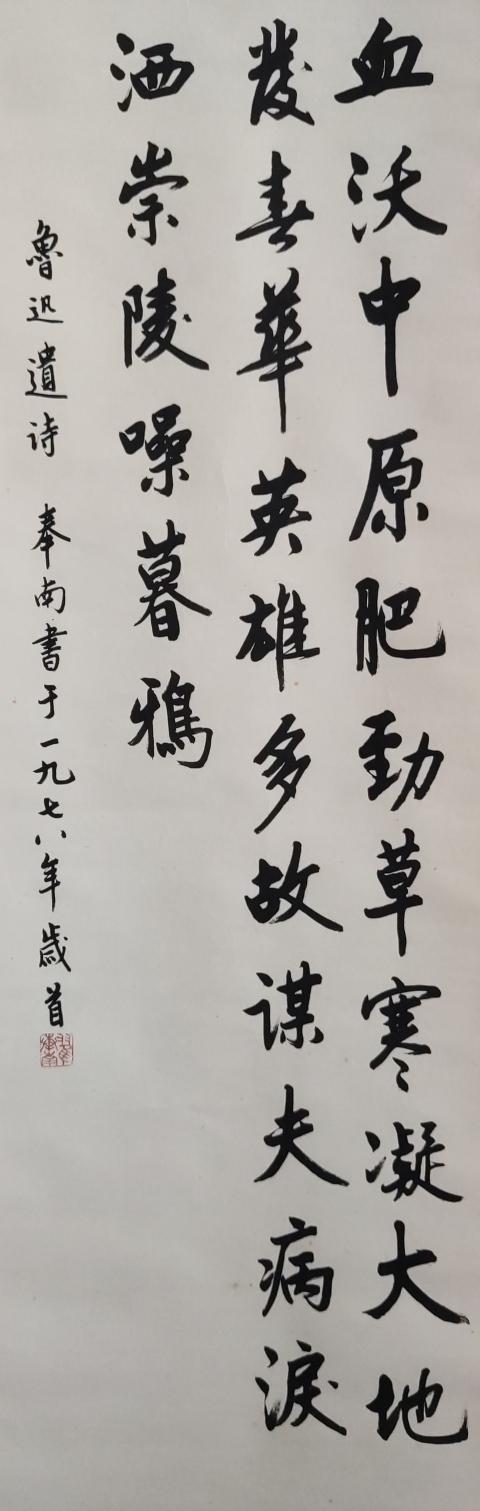 血沃中原肥勁草寒凝大地
發春華英雄多故謀夫病淚
洒崇陵噪暮鴉
魯迅遺詩 奉南書于一九七八年歲首